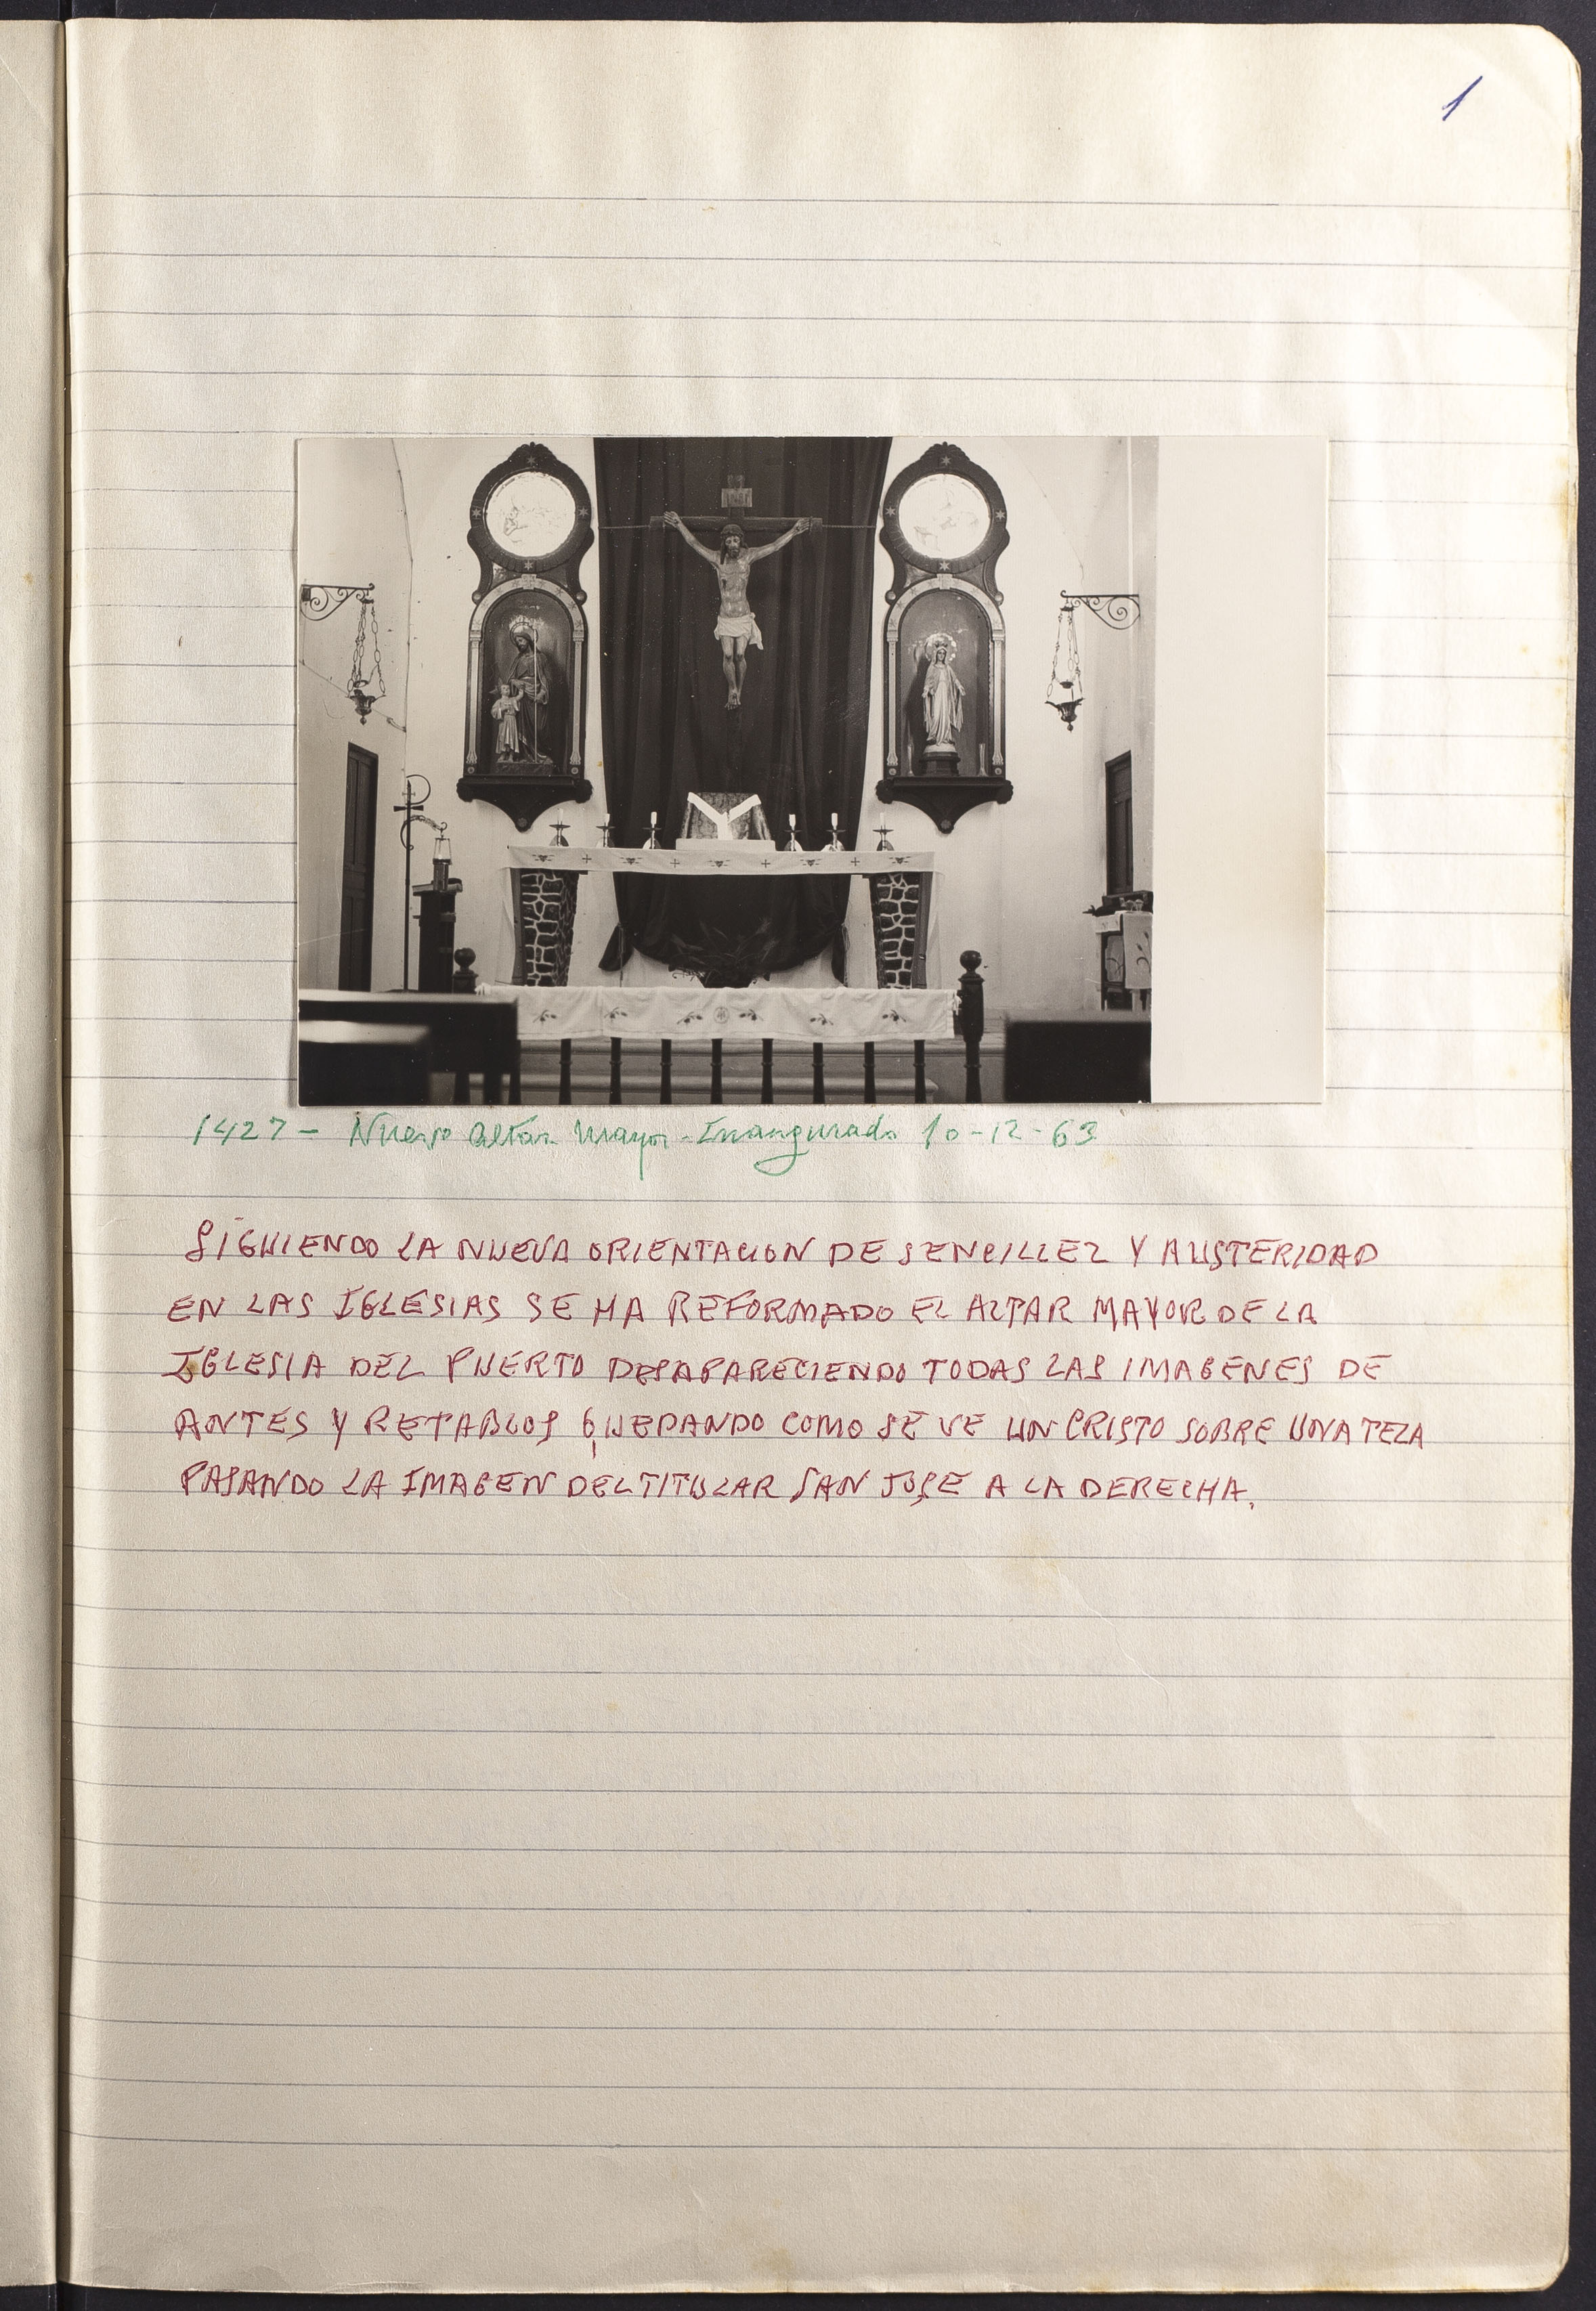 1
INRI
1427 - Nuevo Altar Mayor - Inaugurado 10-12-63
SIGUIENDO LA NUEVA ORIENTACION DE SENCILLEZ Y AUSTERIDAD
EN LAS IGLESIAS SE HA REFORMADO EL ALTAR MAYOR DE LA
IGLESIA DEL PUERTO DESAPARECIENDO TODAS LAS IMAGENES DE
ANTES Y RETABLOS QUEDANDO COMO SE VE UN CRISTO SOBRE UNA TELA
PASANDO LA IMAGEN DEL TITULAR SAN JOSE A LA DERECHA.